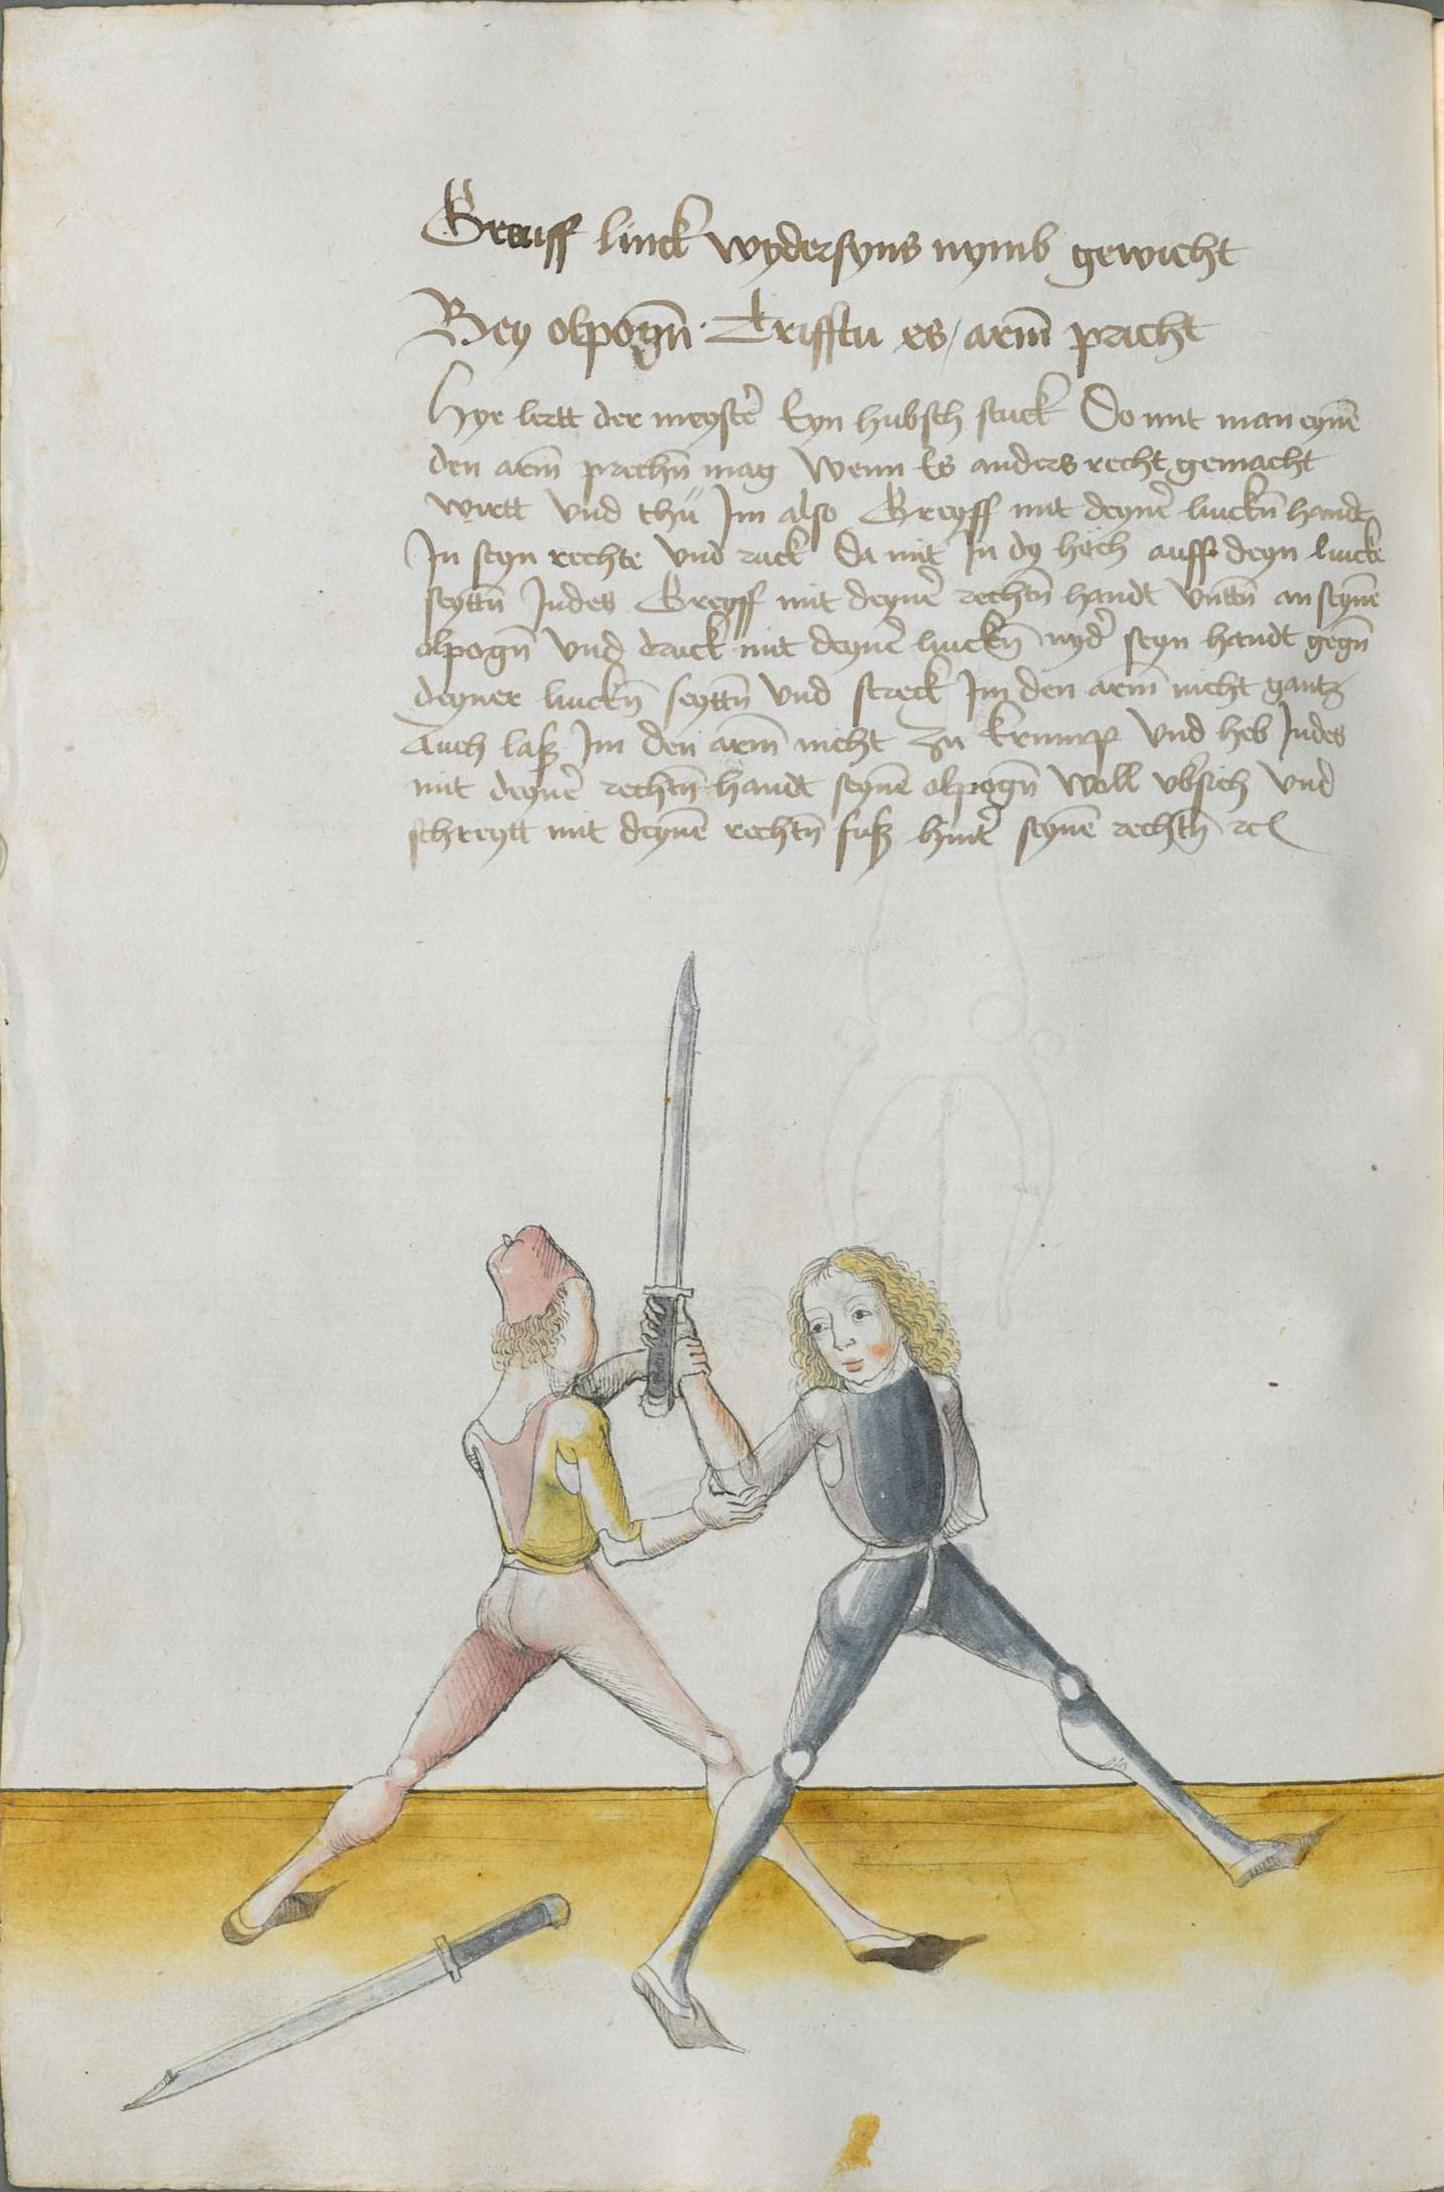 Greuff linck wydersyns nymb gewicht
Bey olpogn̄. Trifftu es / arm̄ pricht
Hye lertt der meyster̄ Eyn hubsch stuck Do mit man eynē
den arm̄ prechn̄ mag Wenn Es anders recht gemacht
wirtt Vnd thu Im also Greyff mit deyner̄ linckn̄ handt
In seyn rechte Vnd ruck Da mit In dy hoch auff deyn lincke
seyttn̄ Indes Greyff mit deyner̄ rechtn̄ handt Vnttn̄ an seynē
olpogn̄ Vnd druck mit deyner̄ linckn̄ nyder̄ seyn handt gegn̄
deyner linckn̄ seyttn̄ Vnd streck Im den arm̄ nicht gantz
Auch laß Im den arm̄ nicht zu krump Vnd heb Indes
mit deyner̄ rechtn̄ handt seynē olpogn̄ Woll vbersich Vnd
schreytt mit deynē rechtn̄ fuß hinter̄ seynē rechtn̄ ꝛc